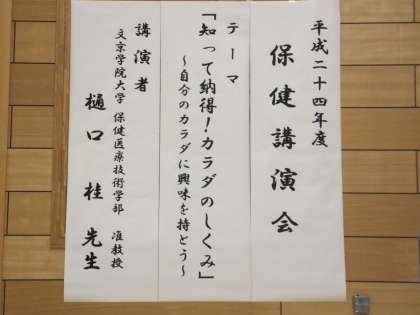 平成二十四年度
保健講演会
テーマ
「知って納得！カラダのしくみ」
～自分のカラダに興味を持とう～
講演者
文京学院大学 保健医療技術学部 准教授
樋口 桂 先生